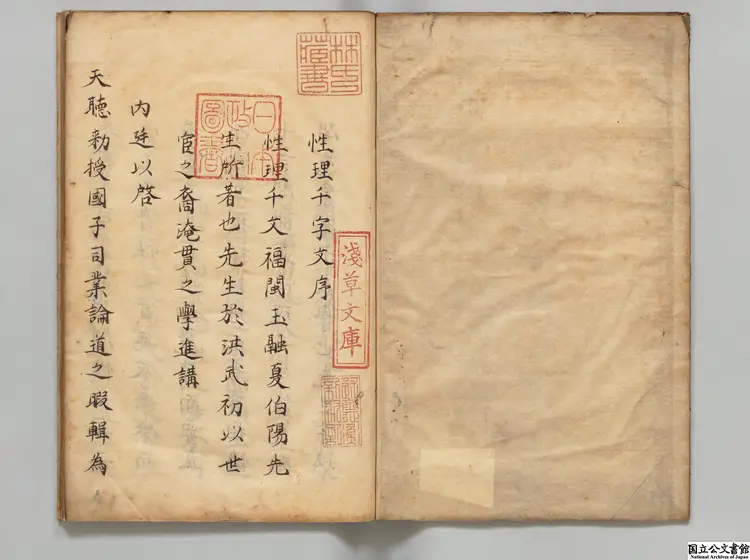 性理千字文序
性理千文福閩玉融夏伯陽先
生所著也先生於洪武初以世
宦之裔淹貫之學進講
内廷以啓
天聽勅授國子司業論道之暇輯為
林氏藏書
日本政府圖書
淺草文庫
国立公文書館
National Archives of Japan